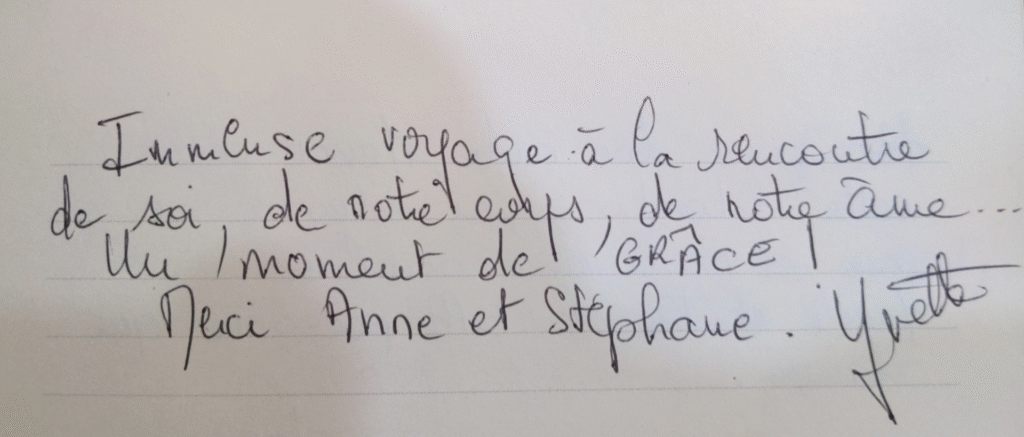 Immense voyage à la rencontre
de soi, de notre corps, de notre âme...
Un moment de GRÂCE !
Merci Anne et Stéphane. Yvette